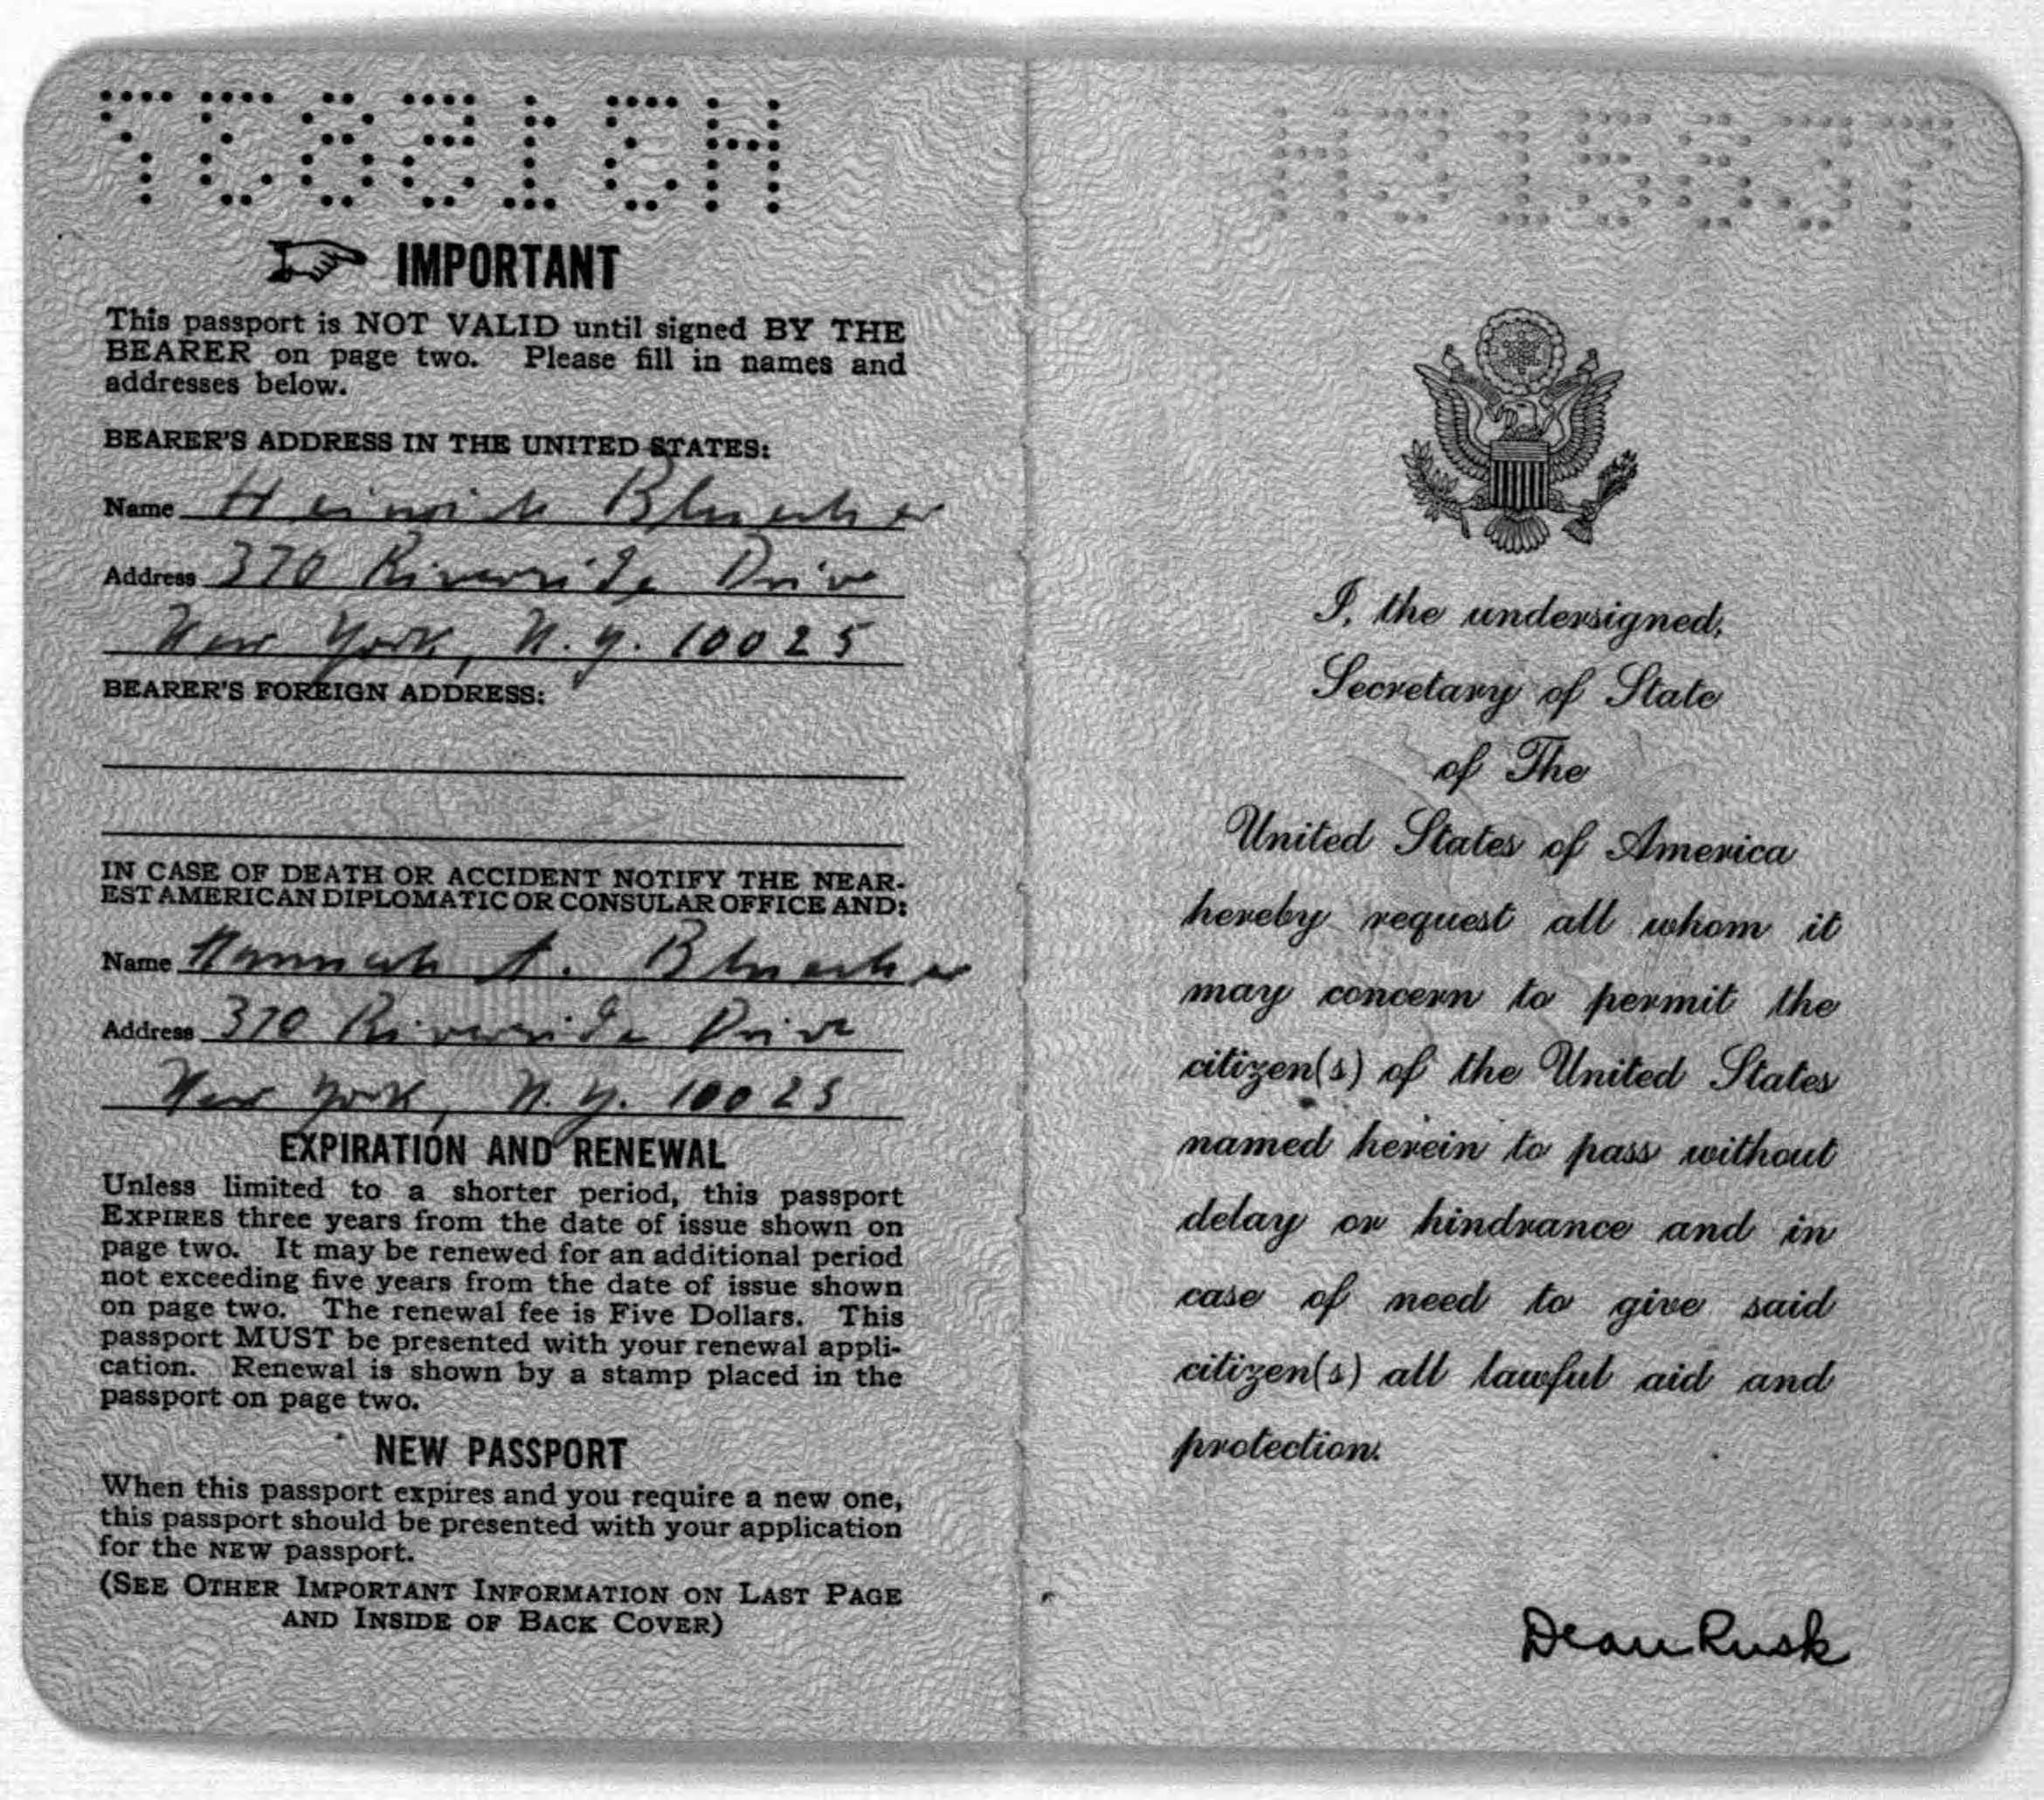 IMPORTANT
This passport is NOT VALID until signed BY THE
BEARER on page two. Please fill in names and
addresses below.
BEARER'S ADDRESS IN THE UNITED STATES:
Name Heinrich Bluecher
Address 370 Riverside Drive
New York, N.Y. 10025
BEARER'S FOREIGN ADDRESS:
IN CASE OF DEATH OR ACCIDENT NOTIFY THE NEAR-
EST AMERICAN DIPLOMATIC OR CONSULAR OFFICE AND:
Name Hannah A. Bluecher
Address 370 Riverside Drive
New York, N.Y. 10025
EXPIRATION AND RENEWAL
Unless limited to a shorter period, this passport
EXPIRES three years from the date of issue shown on
page two. It may be renewed for an additional period
not exceeding five years from the date of issue shown
on page two. The renewal fee is Five Dollars. This
passport MUST be presented with your renewal appli-
cation. Renewal is shown by a stamp placed in the
passport on page two.
NEW PASSPORT
When this passport expires and you require a new one,
this passport should be presented with your application
for the NEW passport.
(SEE OTHER IMPORTANT INFORMATION ON LAST PAGE
AND INSIDE OF BACK COVER)
I, the undersigned,
Secretary of State
of The
United States of America
hereby request all whom it
may concern to permit the
citizen(s) of the United States
named herein to pass without
delay or hindrance and in
case of need to give said
citizen(s) all lawful aid and
protection.
Dean Rusk